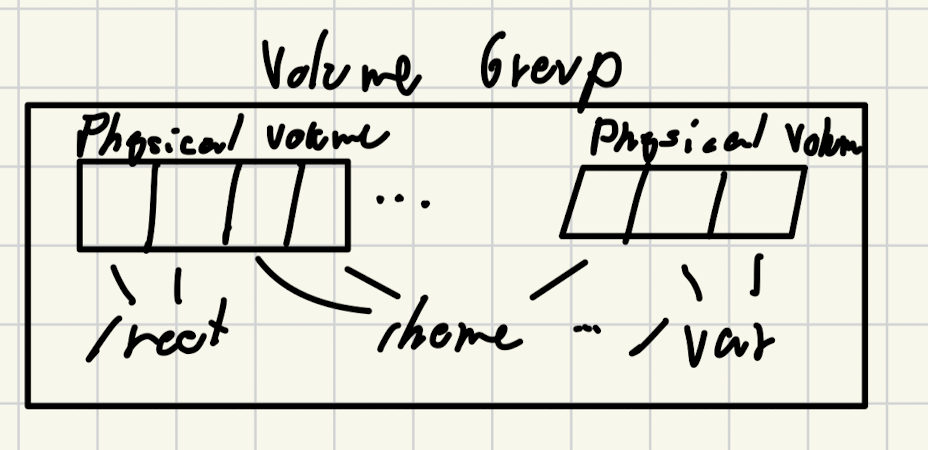 Volume Group
Physical volume Physical Volum
...
/root /home ... / var